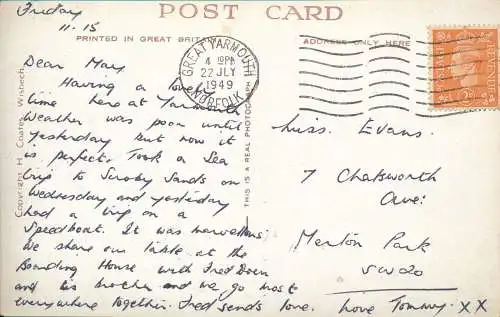 Friday
11.15
POST CARD
PRINTED IN GREAT BRITAIN
ADDRESS ONLY HERE
GREAT YARMOUTH
4 PM
22 JLY
1949
NORFOLK
Dear Mary
Having a lovely
time here at Yarmouth
Weather was poor until
yesterday but now it
is perfect. Took a Sea
trip to Scroby Sands on
Wednesday and yesterday
had a trip on a
Speedboat. It was marvellous.
We share our table at the
Boarding House with Fred
and his brother and we go most
everywhere together. Fred sends love. Love Tommy. X X
Copyright H. Coates, Wisbech
THIS IS A REAL PHOTOGRAPH
POSTAGE
REVENUE
2D
Miss. Evans.
7 Chatsworth
Ave:
Merton Park
SW20